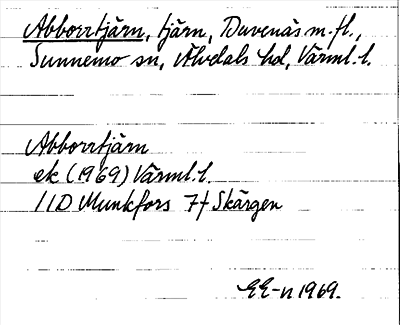 Abborrtjärn, tjärn, Duvenäs m. fl.,
Sunnemo sn, Älvdals hd, Värml. l.
Abborrtjärn
ek (1969) Värml. l.
11D Munkfors 7f Skärgen
EE-n 1969.